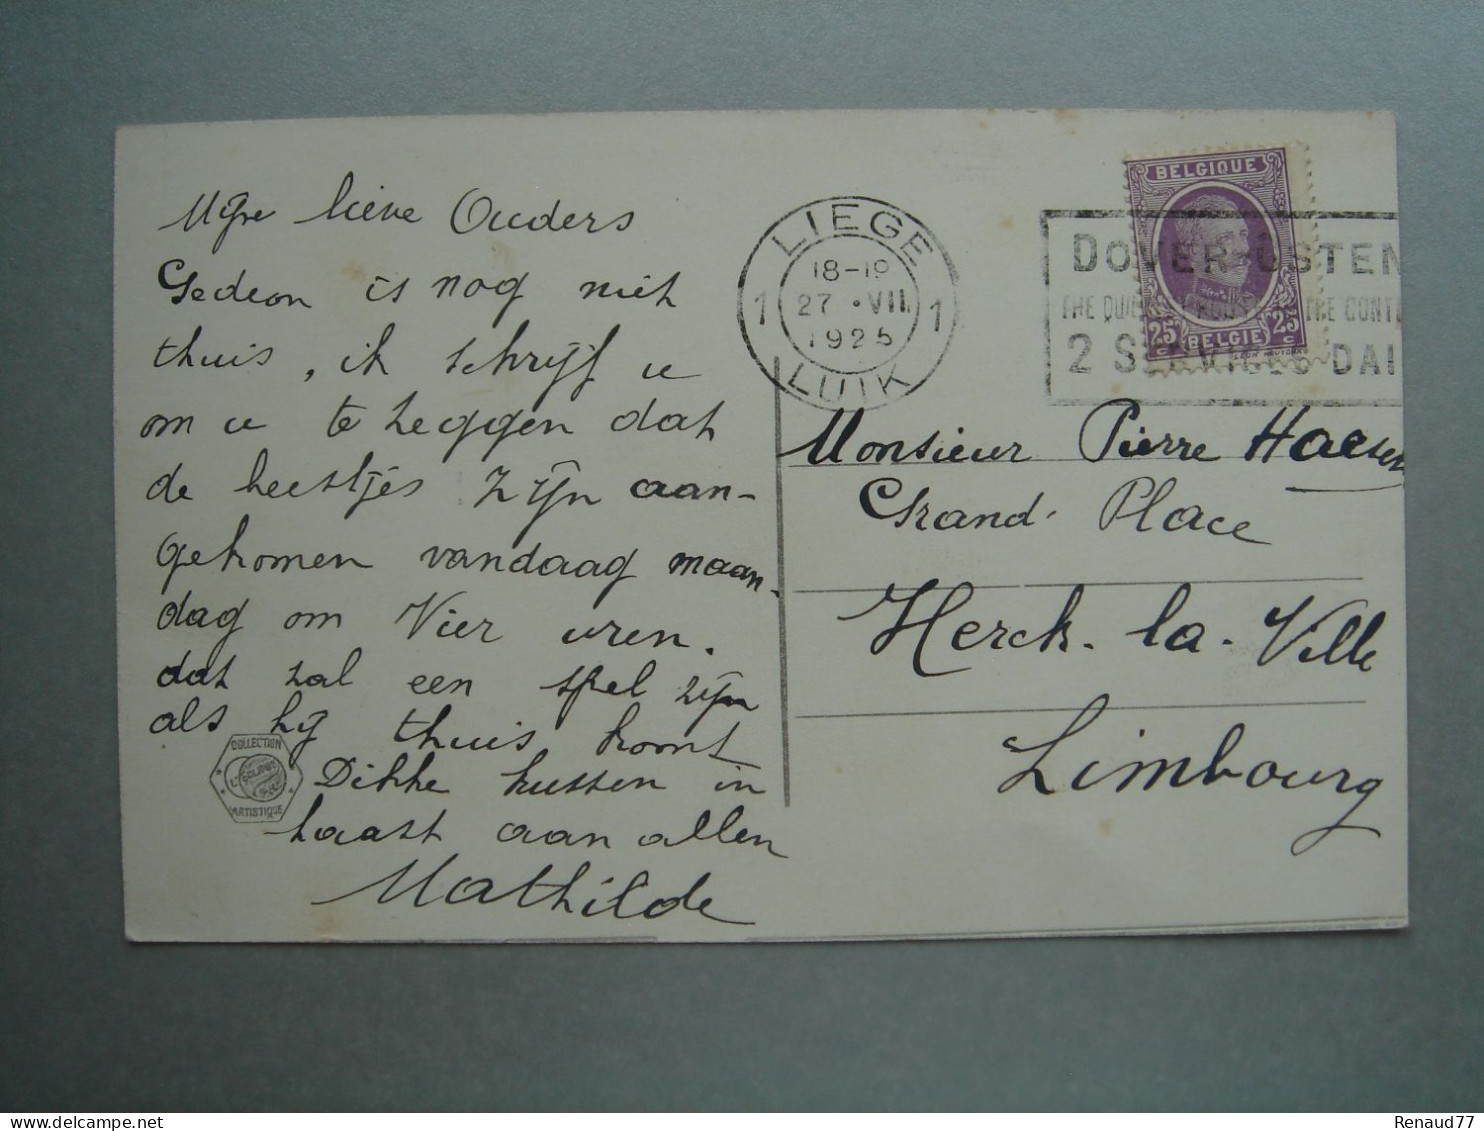 Mijne lieve Ouders
Gedeon is nog niet
thuis, ik schrijf u
om u te zeggen dat
de beestjes zijn aan-
gekomen vandaag maan-
dag om Vier uren.
dat zal een spel zijn
als hij thuis komt
Dikke kussen in
haast aan allen
Mathilde
COLLECTION
ARTISTIQUE
LIEGE
18-19
27 • VII.
1925
1 1
LUIK
BELGIQUE
25c BELGIE 25c
DOVER-OSTEN
THE CONT
2 SERVICES DAI
Monsieur Pierre Haesen
Grand. Place
Herck-la-Ville
Limbourg
Renaud77